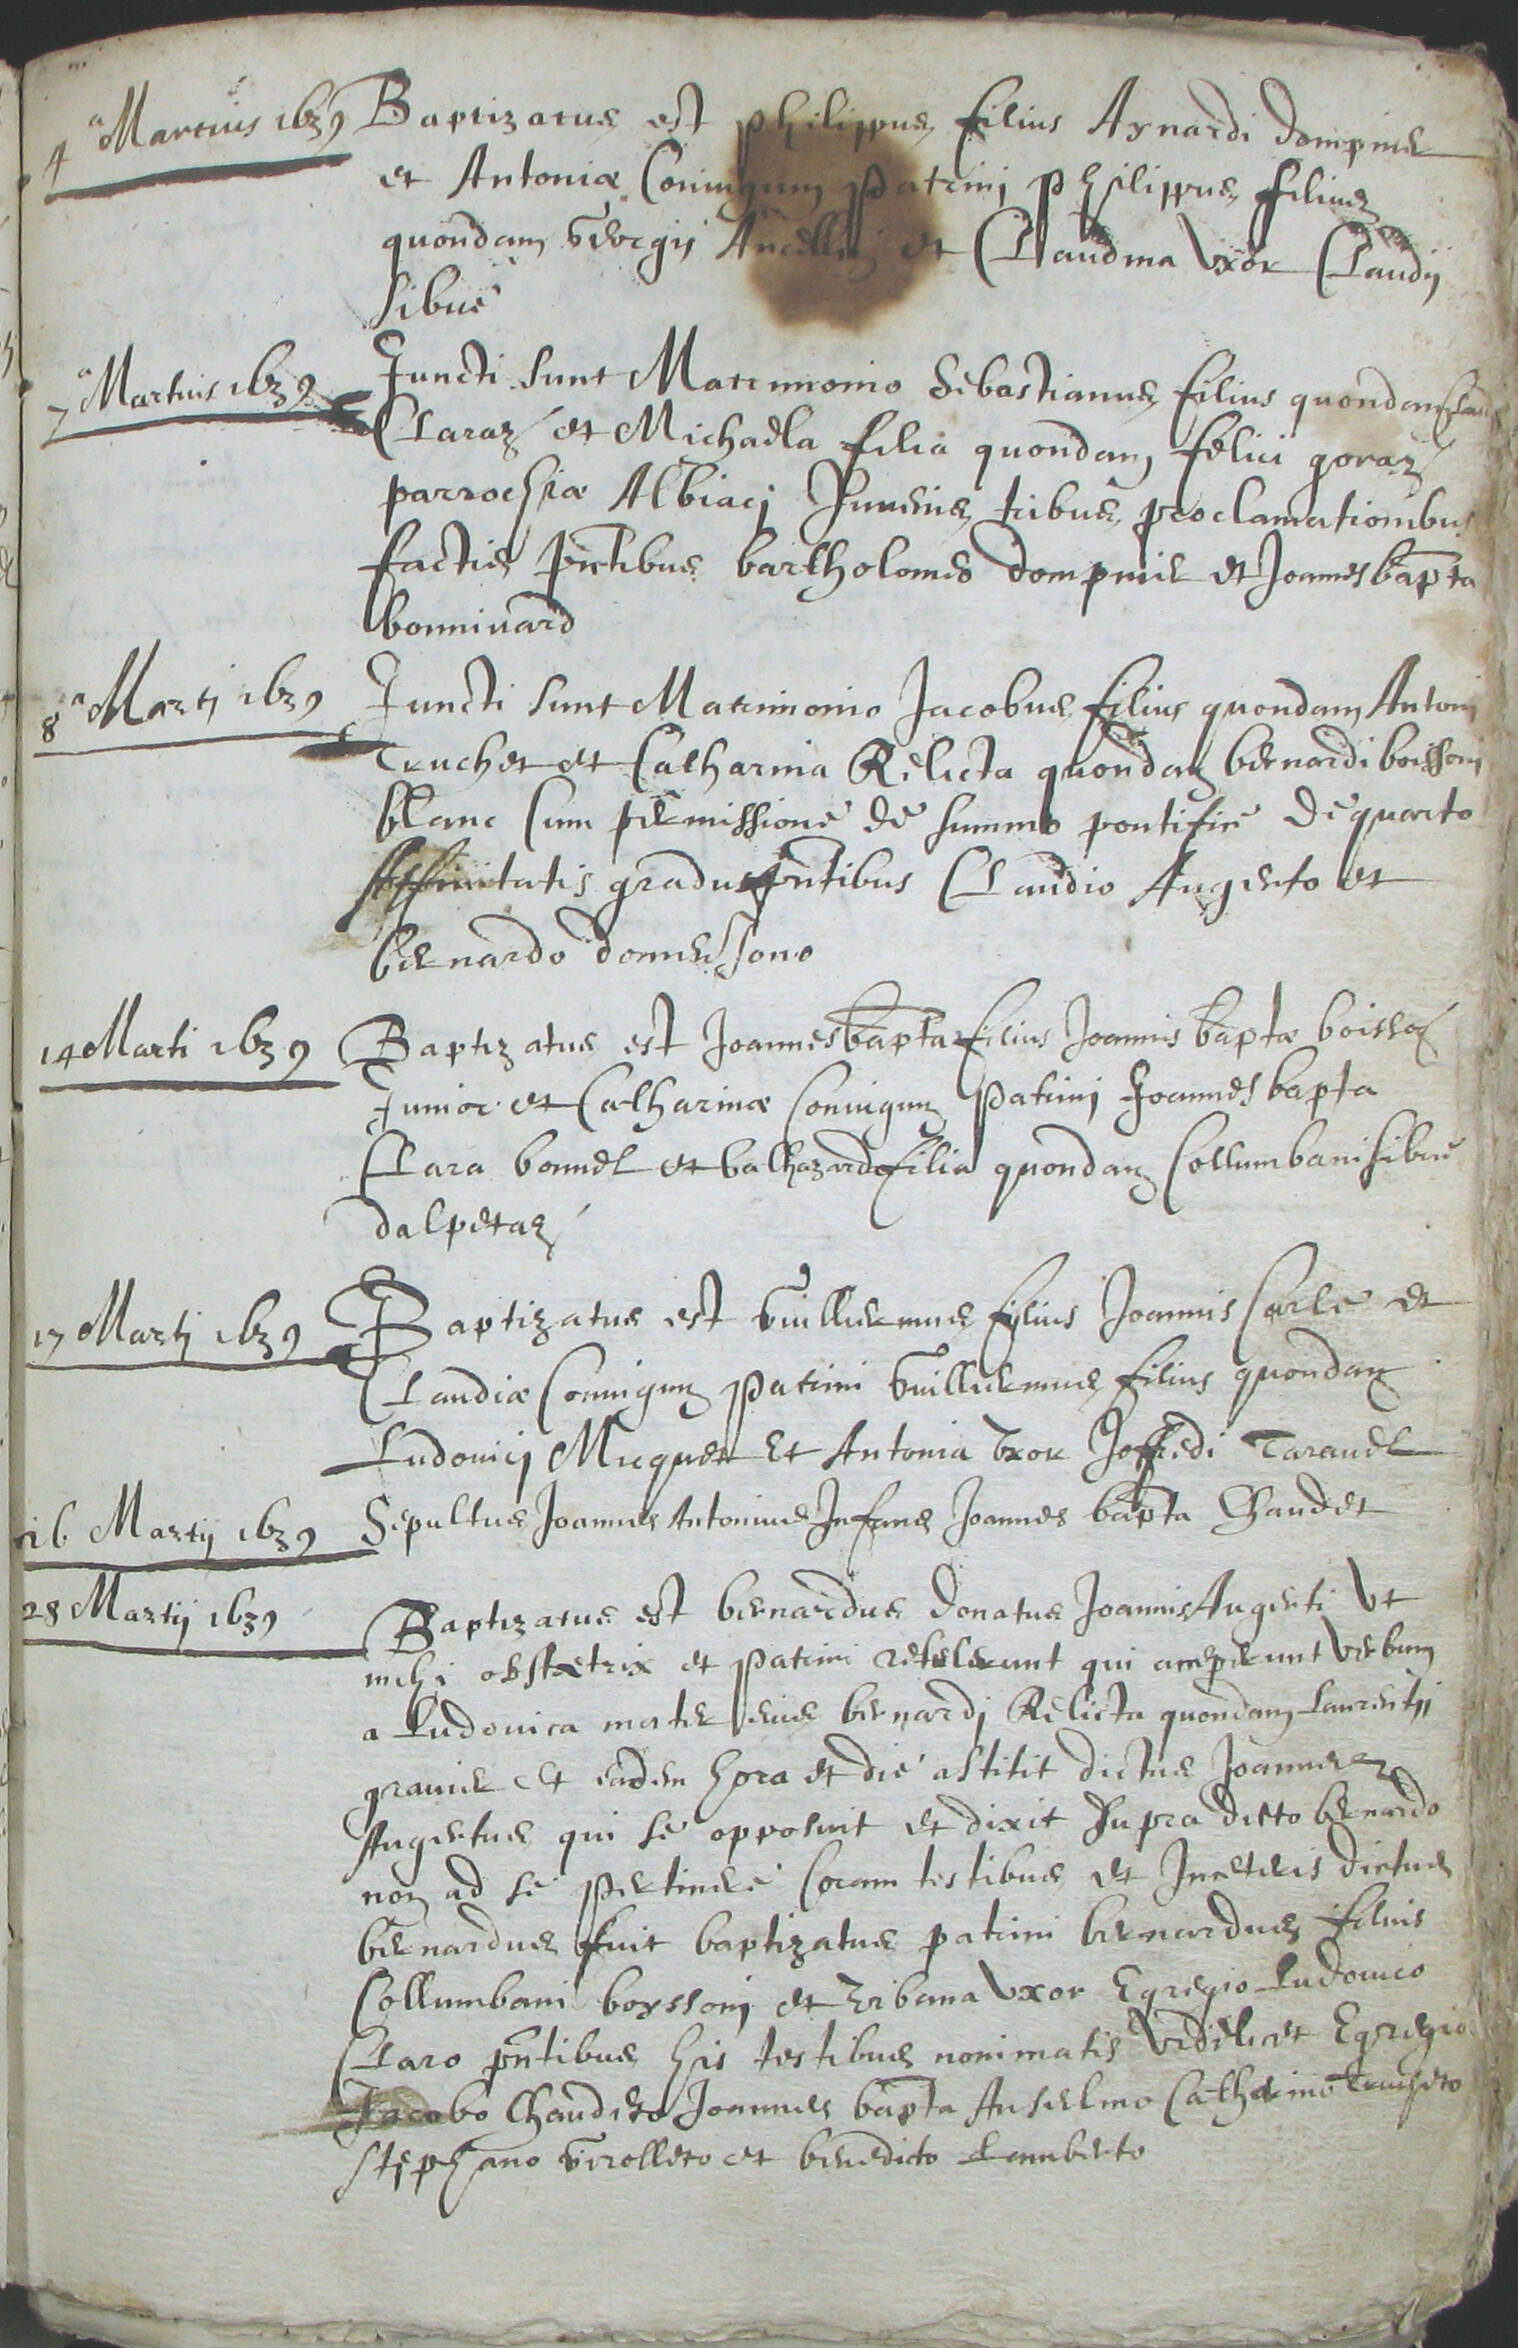 4a Martius 1639 Baptizatus est philippus filius Aynardi dompnier
et Antoniæ Coniugum patrini philippus filius
quondam Georgij Ancellin et Claudina Vxor Claudij
sibue
7a Martius 1639 Juncti sunt Matrimonio Sebastianus filius quondam
Claraz et Michaela filia quondam felici goraz
parrochiæ Albiacj tribus proclamationibus
factis pntibus bartholomeo dompnier et Joannes bapta
bonniuard
8a Martj 1639 Juncti sunt Matrimonio Jacobus filius quondam Antonj
Truchet et Catharina Relicta quondam bernardi boissonj
blanc Cum permissione de summo pontifice de quarto
affinitatis gradus pntibus Claudio Augerto et
bernardo
14 Marti 1639 Baptizatus est Joannes bapta filius Joannis baptæ boisson
Junior et Catharinæ Coniugum patrini Joannes bapta
Clara bonnel et balthazarde filia quondam Collumbani sibue
dalpetaz
17 Martj 1639 Baptizatus est Guillermus filius Joannis Carle et
Claudiæ Coniugum patrini Guillermus filius quondam
Ludouicj Micquet et Antonia Vxor Joffredi Tarauel
26 Martij 1639 Sepultus Joannes Antonius Infans Joannes bapta Chaudet
28 Martij 1639 Baptizatus est bernardus donatus Joannis Augerti Vt
mihi obstetrix et patrini retulerunt qui acceperunt Verbum
a Ludouica mater eius bernardj Relicta quondam Laurentij
grauier Et eadem hora et die astitit dictus Joannes
Augertus qui se opposuit et dixit supra dicto bernardo
non ad se pertinere Coram testibus et Inceteris dictus
bernardus fuit baptizatus patrini bernardus filius
Collumbani boyssonj et Vrbana Vxor Egregio Ludouico
Claro pntibus his testibus nominatis Videlicet Egregio
Jacobo Chaudeto Joannes bapta Anselmo Catherino Trucheto
stephano Girolleto et benedicto Lamberto